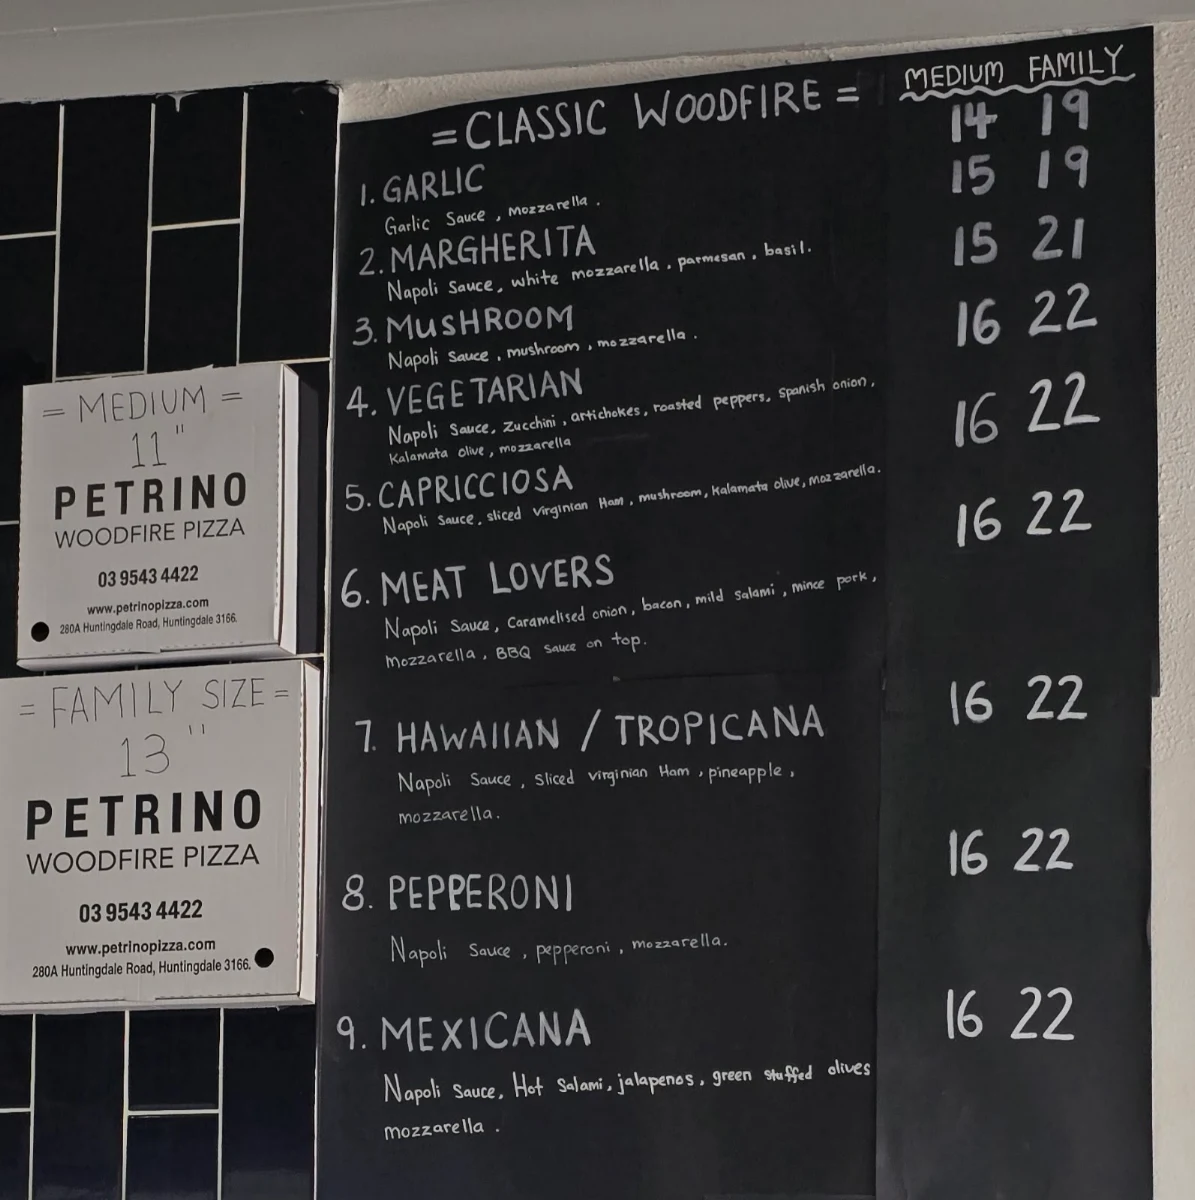 MEDIUM FAMILY
= CLASSIC WOODFIRE =
14 19
1. GARLIC
Garlic Sauce, mozzarella.
15 19
2. MARGHERITA
Napoli Sauce, white mozzarella, parmesan, basil.
15 21
3. MUSHROOM
Napoli Sauce, mushroom, mozzarella.
16 22
4. VEGETARIAN
Napoli Sauce, Zucchini, artichokes, roasted peppers, Spanish onion,
Kalamata olive, mozzarella
16 22
5. CAPRICCIOSA
Napoli Sauce, sliced Virginian Ham, mushroom, Kalamata olive, mozzarella.
16 22
6. MEAT LOVERS
Napoli Sauce, Caramelised onion, bacon, mild Salami, mince pork,
Mozzarella, BBQ Sauce on top.
16 22
7. HAWAIIAN / TROPICANA
Napoli Sauce, Sliced virginian Ham, pineapple,
mozzarella.
16 22
8. PEPPERONI
Napoli Sauce, pepperoni, mozzarella.
16 22
9. MEXICANA
Napoli Sauce, Hot Salami, jalapenos, green stuffed olives
mozzarella.
= MEDIUM =
11"
PETRINO
WOODFIRE PIZZA
03 9543 4422
www.petrinopizza.com
280A Huntingdale Road, Huntingdale 3166.
= FAMILY SIZE =
13"
PETRINO
WOODFIRE PIZZA
03 9543 4422
www.petrinopizza.com
280A Huntingdale Road, Huntingdale 3166.